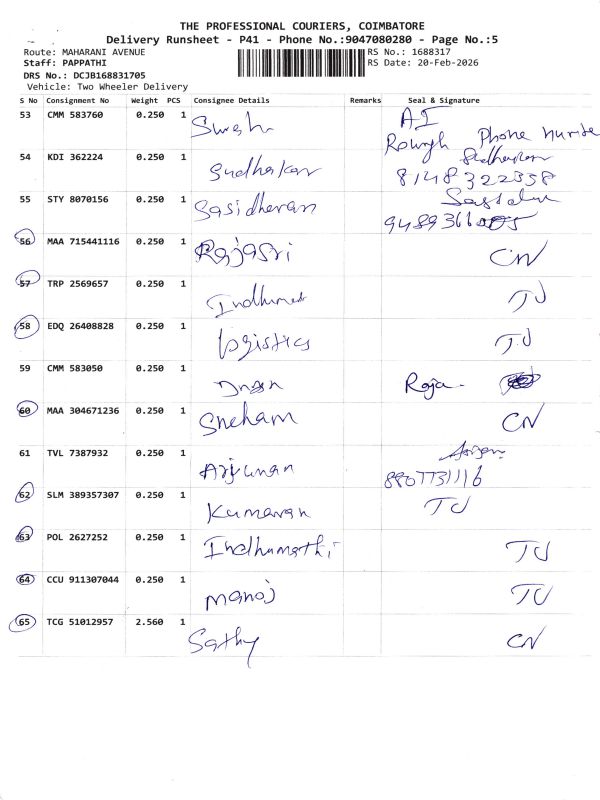 THE PROFESSIONAL COURIERS, COIMBATORE
Delivery Runsheet - P41 - Phone No.:9047080280 - Page No.:5
Route: MAHARANI AVENUE RS No.: 1688317
Staff: PAPPATHI RS Date: 20-Feb-2026
DRS No.: DCJB168831705
Vehicle: Two Wheeler Delivery
S No Consignment No Weight PCS Consignee Details Remarks Seal & Signature
53 CMM 583760 0.250 1
Phone
54 KDI 362224 0.250 1 Sudhakar Sudhakar
8148322358
55 STY 8070156 0.250 1 Sasidharan
56 MAA 715441116 0.250 1 Rajasri CN
57 TRP 2569657 0.250 1 TJ
58 EDQ 26408828 0.250 1 logistics TJ
59 CMM 583050 0.250 1 Raja
60 MAA 304671236 0.250 1 Sneham CN
61 TVL 7387932 0.250 1 Arjunan
8807731116
62 SLM 389357307 0.250 1 Kumaran TJ
63 POL 2627252 0.250 1 Indhumathi TJ
64 CCU 911307044 0.250 1 Manoj TJ
65 TCG 51012957 2.560 1 Sathy CN